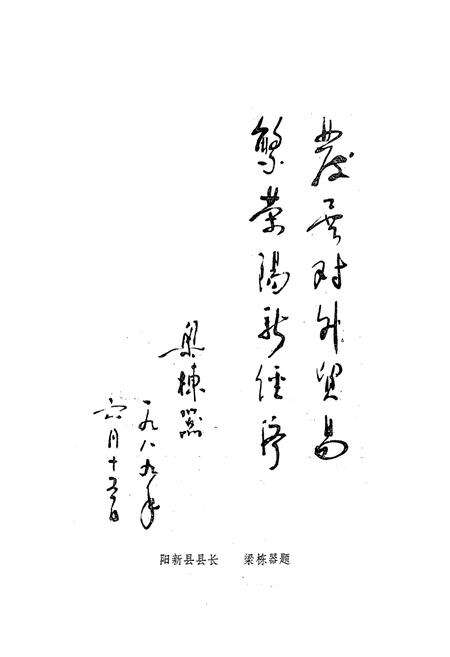 发展对外貿易
繁荣陽新经济
梁棟器
一九八九年
六月十五日
阳新县县长 梁栋器题